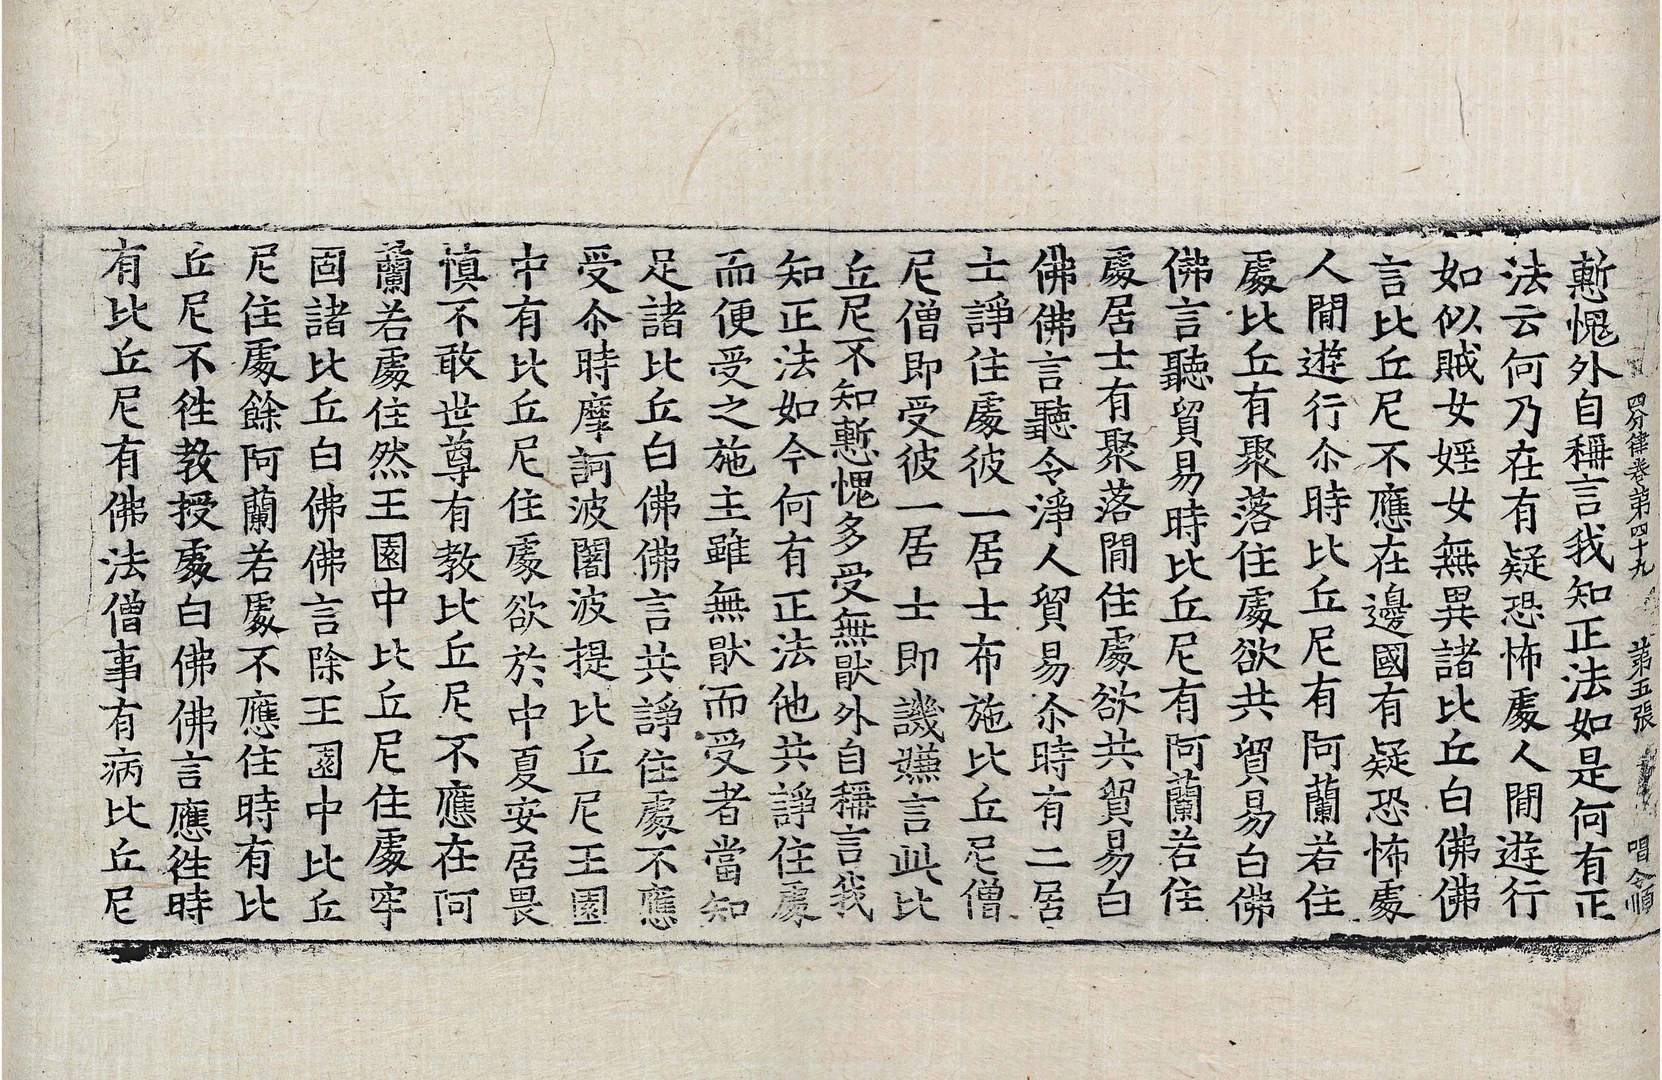 四分律卷第四十九 第五張 唱 令順
慙愧外自稱言我知正法如是何有正
法云何乃在有疑恐怖處人閒遊行
如似賊女婬女無異諸比丘白佛佛
言比丘尼不應在邊國有疑恐怖處
人閒遊行尒時比丘尼有阿蘭若住
處比丘有聚落住處欲共貿易白佛
佛言聽貿易時比丘尼有阿蘭若住
處居士有聚落閒住處欲共貿易白
佛佛言聽令淨人貿易尒時有二居
士諍住處彼一居士布施比丘尼僧
尼僧即受彼一居士即譏嫌言此比
丘尼不知慙愧多受無猒外自稱言我
知正法如今何有正法他共諍住處
而便受之施主雖無猒而受者當知
足諸比丘白佛佛言共諍住處不應
受尒時摩訶波闍波提比丘尼王園
中有比丘尼住處欲於中夏安居畏
慎不敢世尊有教比丘尼不應在阿
蘭若處住然王園中比丘尼住處牢
固諸比丘白佛佛言除王園中比丘
尼住處餘阿蘭若處不應住時有比
丘尼不徃教授處白佛佛言應徃時
有比丘尼有佛法僧事有病比丘尼